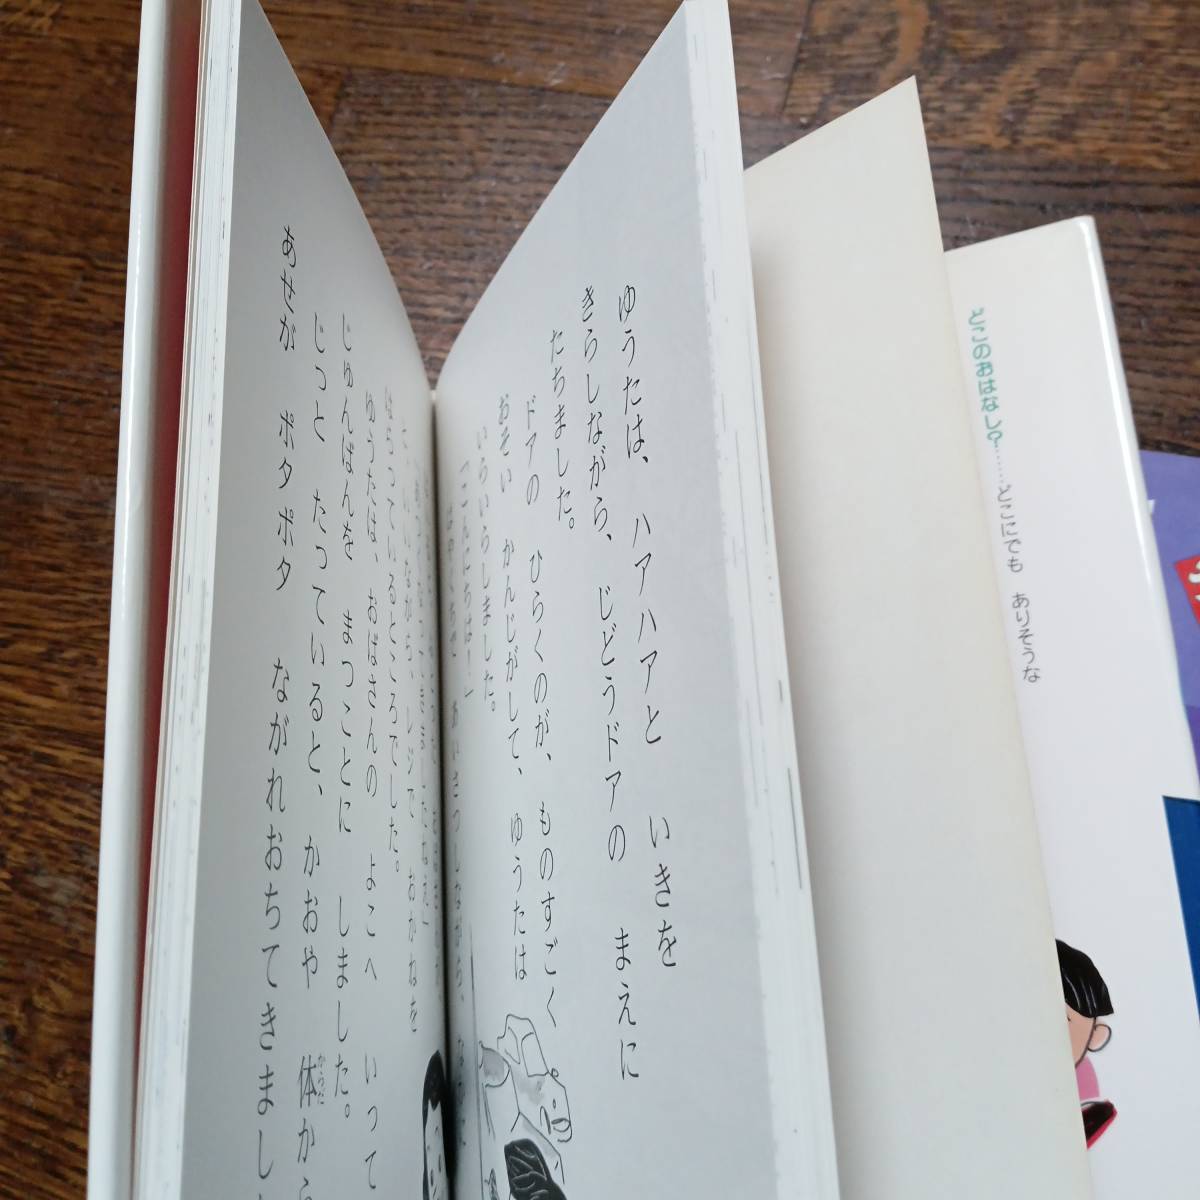 ゆうたは、 ハアハアと いきを
きらしながら、 じどうドアの まえに
たちました。
ドアの ひらくのが、 ものすごく
おそい かんじがして、 ゆうたは
いらいらしました。
「こんにちは！」
あいさつしながら、
はらっているところでした。
ゆうたは、 おばさんの よこへ いって
じゅんばんを まつことに しました。
じっと たっていると、 かおや 体から
あせが ポタポタ ながれおちてきまし
どこのおはなし？……どこにでも ありそうな